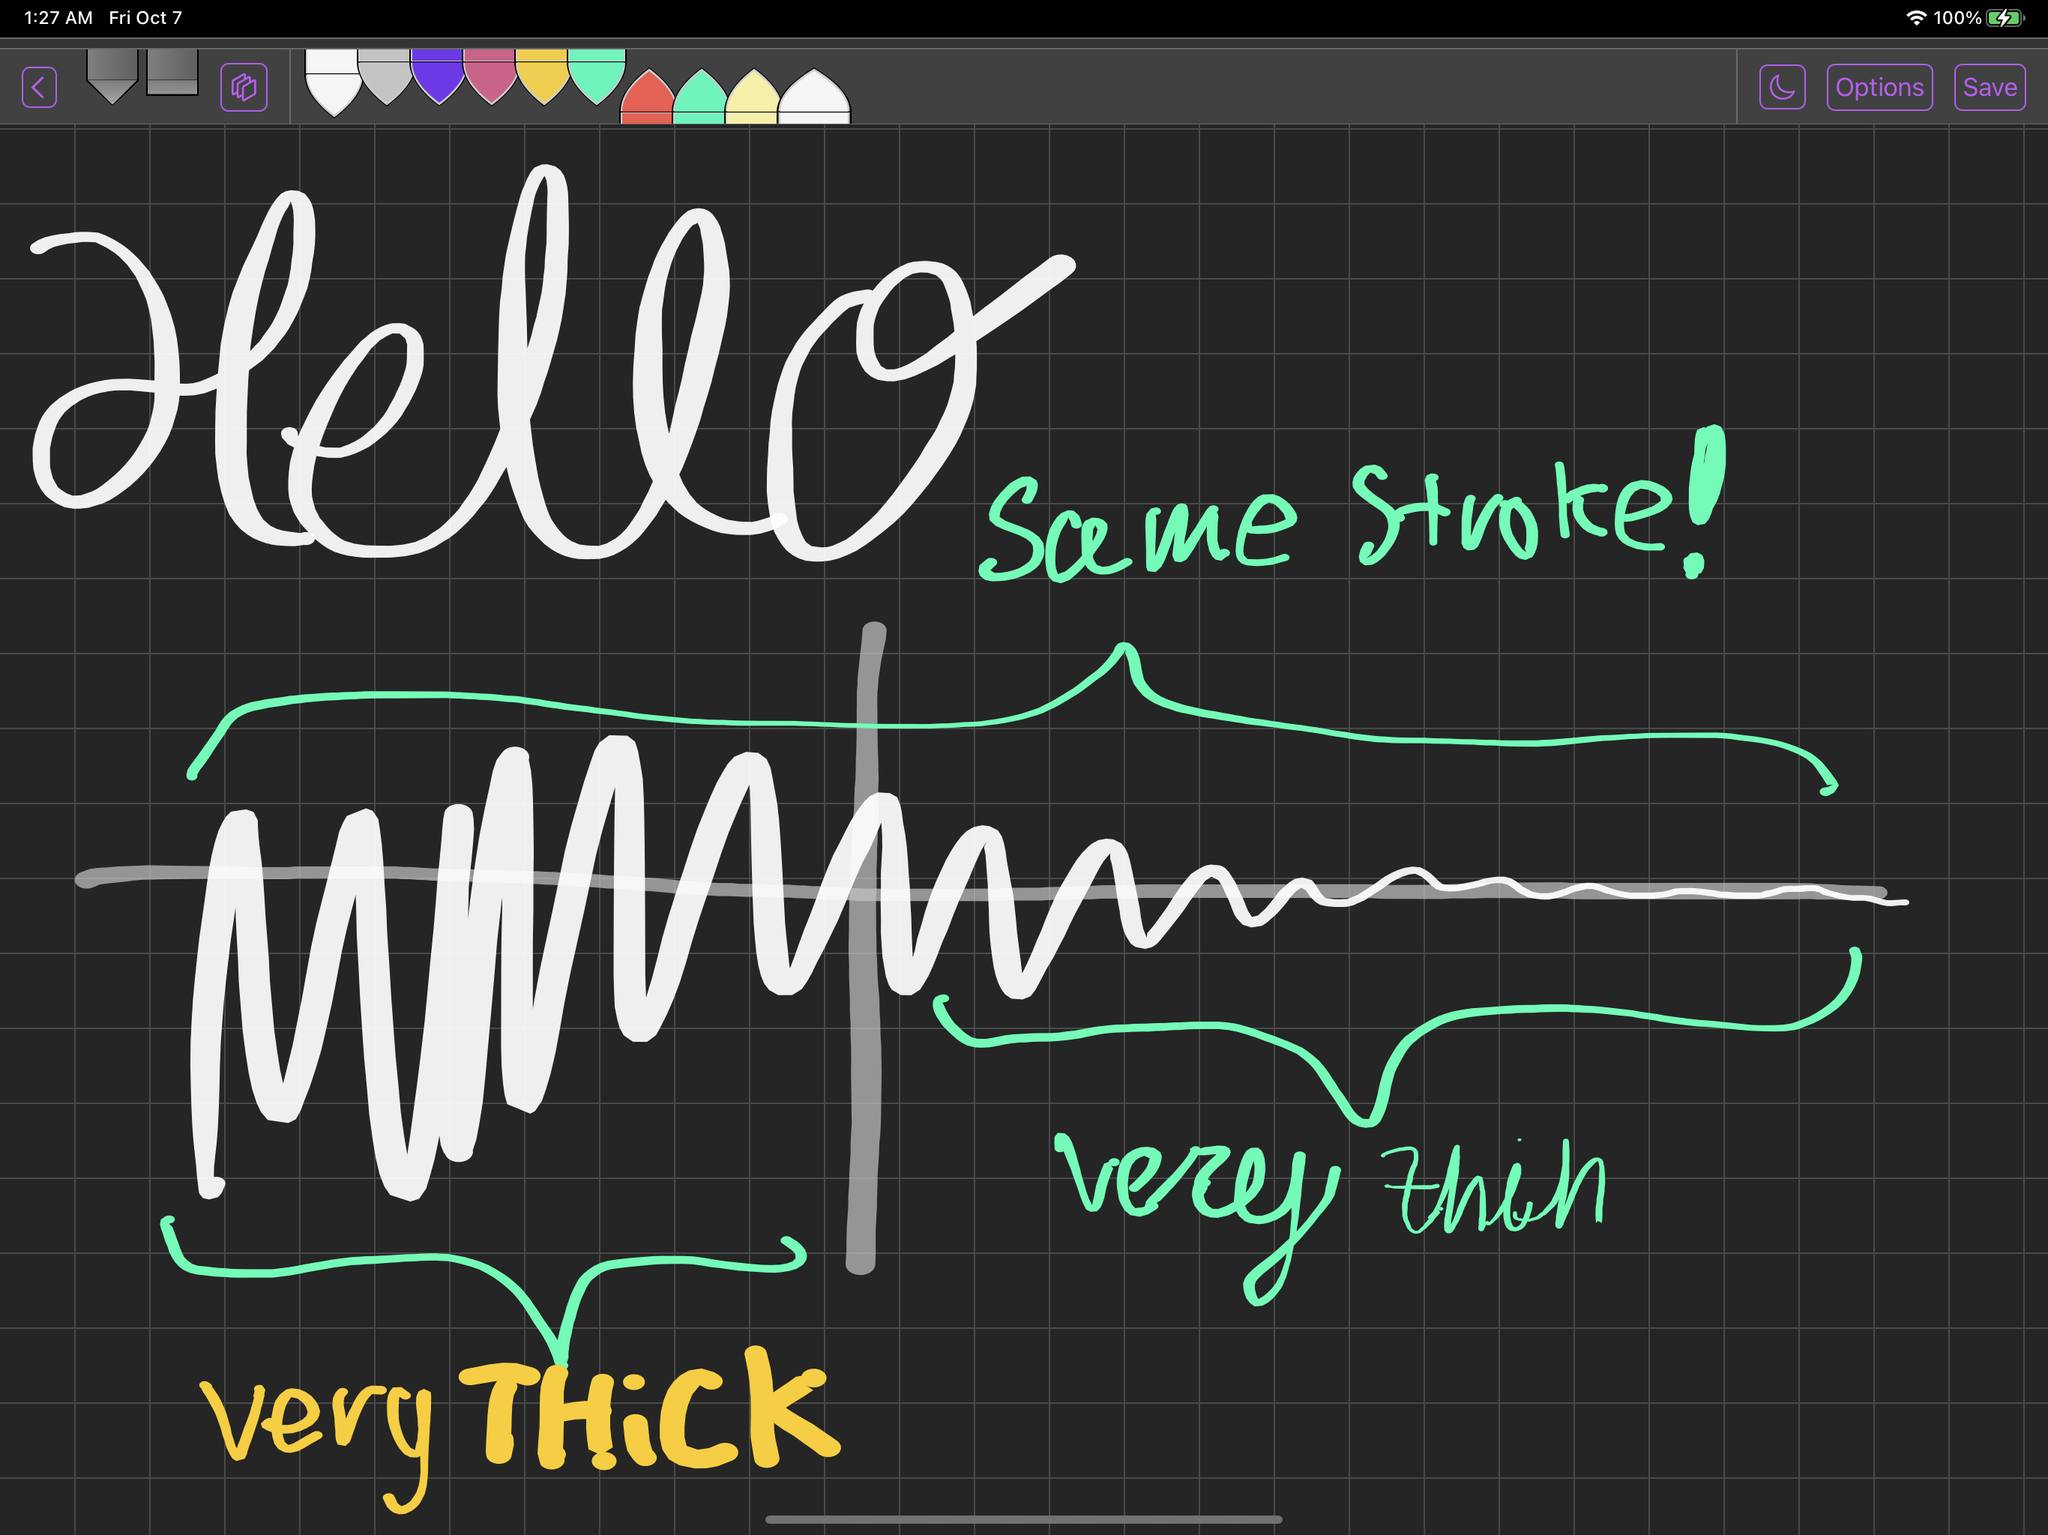 1:27 AM Fri Oct 7 100%
Options Save
Hello
Same Stroke!
very thin
very THiCK